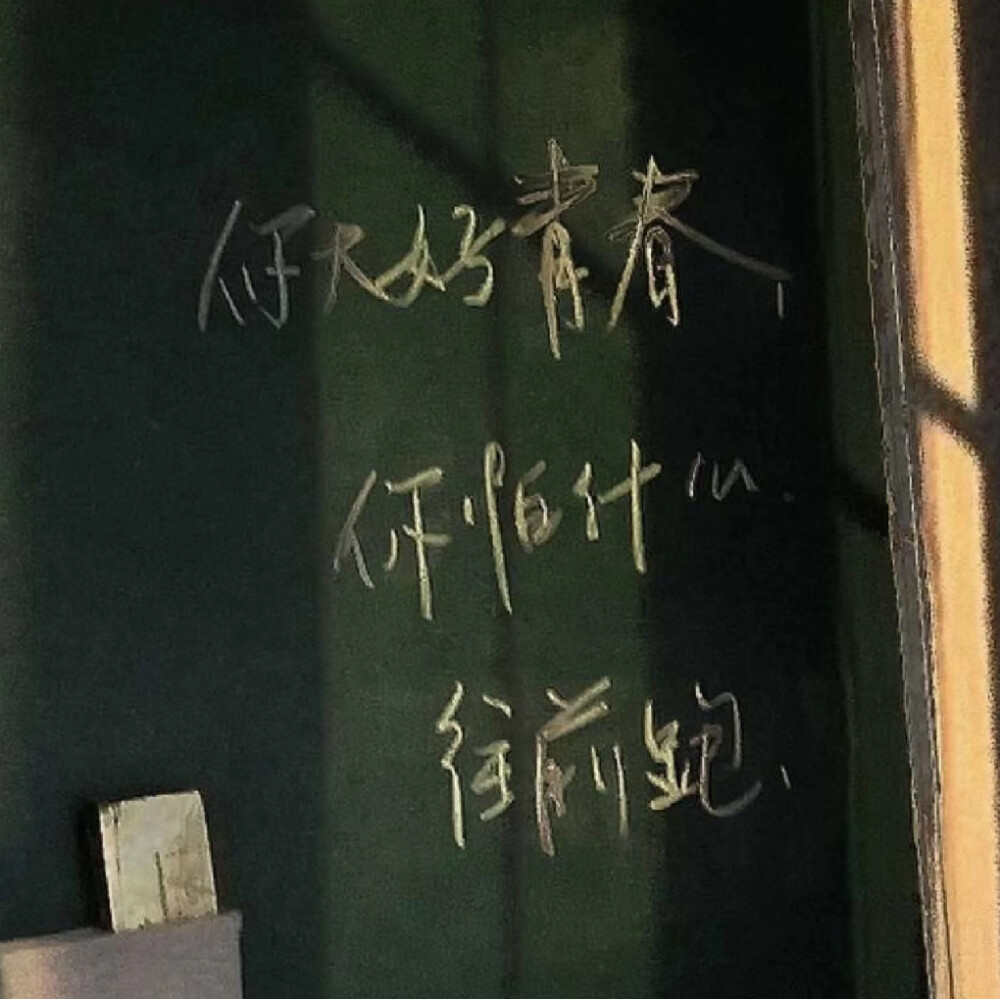 仔大好青春，
你怕什么.
往前跑，